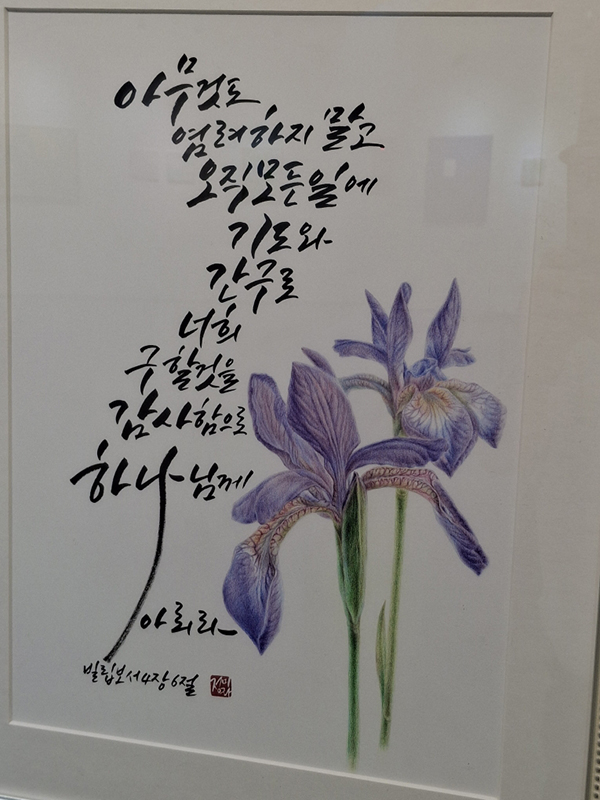 아무것도
염려하지 말고
오직 모든 일에
기도와
간구로
너희
구할 것을
감사함으로
하나님께
아뢰라
빌립보서 4장 6절